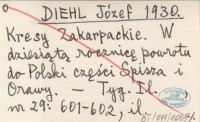 DIEHL Józef 1930.
Kresy Zakarpackie. W
dziesiątą rocznicę powrotu
do Polski części Spisza i
Orawy. - Tyg. Il.
nr 29: 601-602, il.